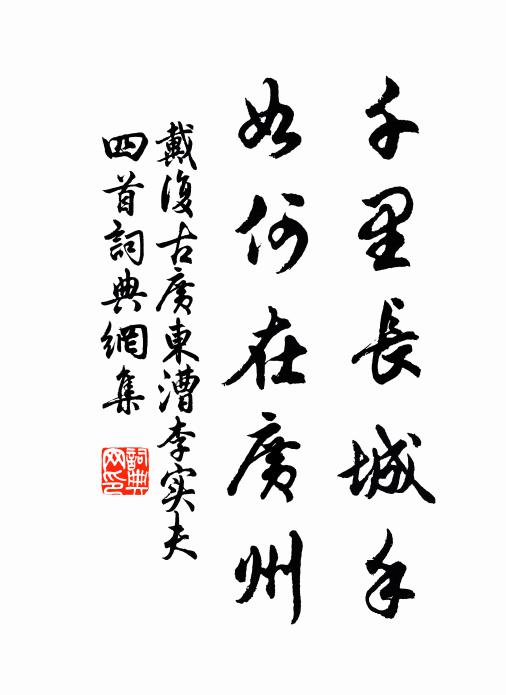 千里長城手
如何在廣州
戴復古廣東漕李实夫
四首詞典網集
詞典网印